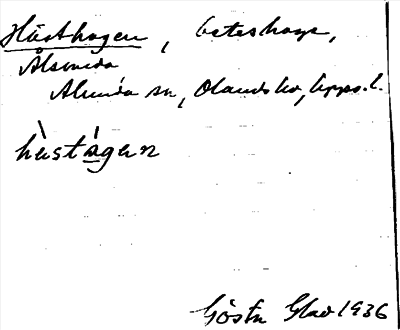 Hästhagen, beteshage,
Ålsunda
Alunda sn, Olands hd, Upps. l.
hèstágen
Gösta Glad 1936